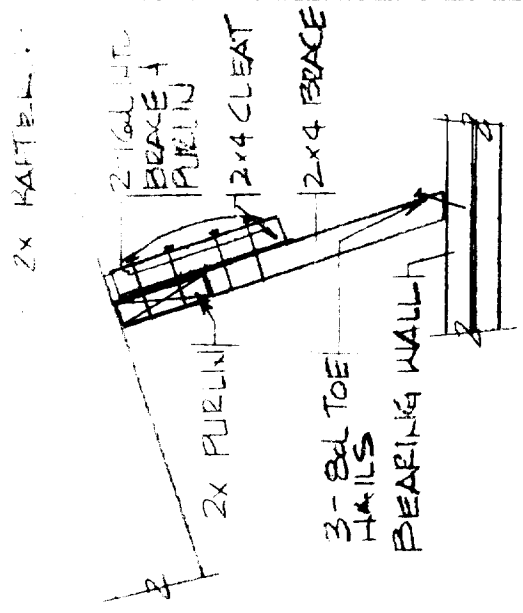 2x RAFTER
2-16d INTO
BRACE &
PURLIN
2x4 CLEAT
2x4 BRACE
2x PURLIN
3-8d TOE
NAILS
BEARING WALL